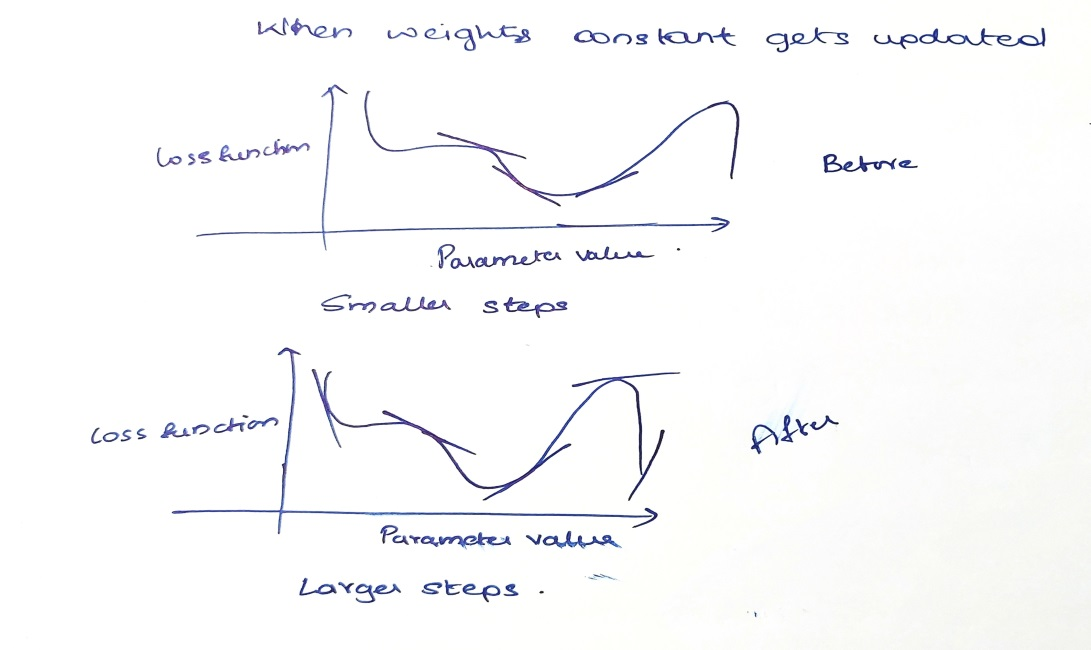 When weights constant gets updated
Loss function
Before
Parameter value.
Smaller steps
Loss function
After
Parameter value
Larger steps.